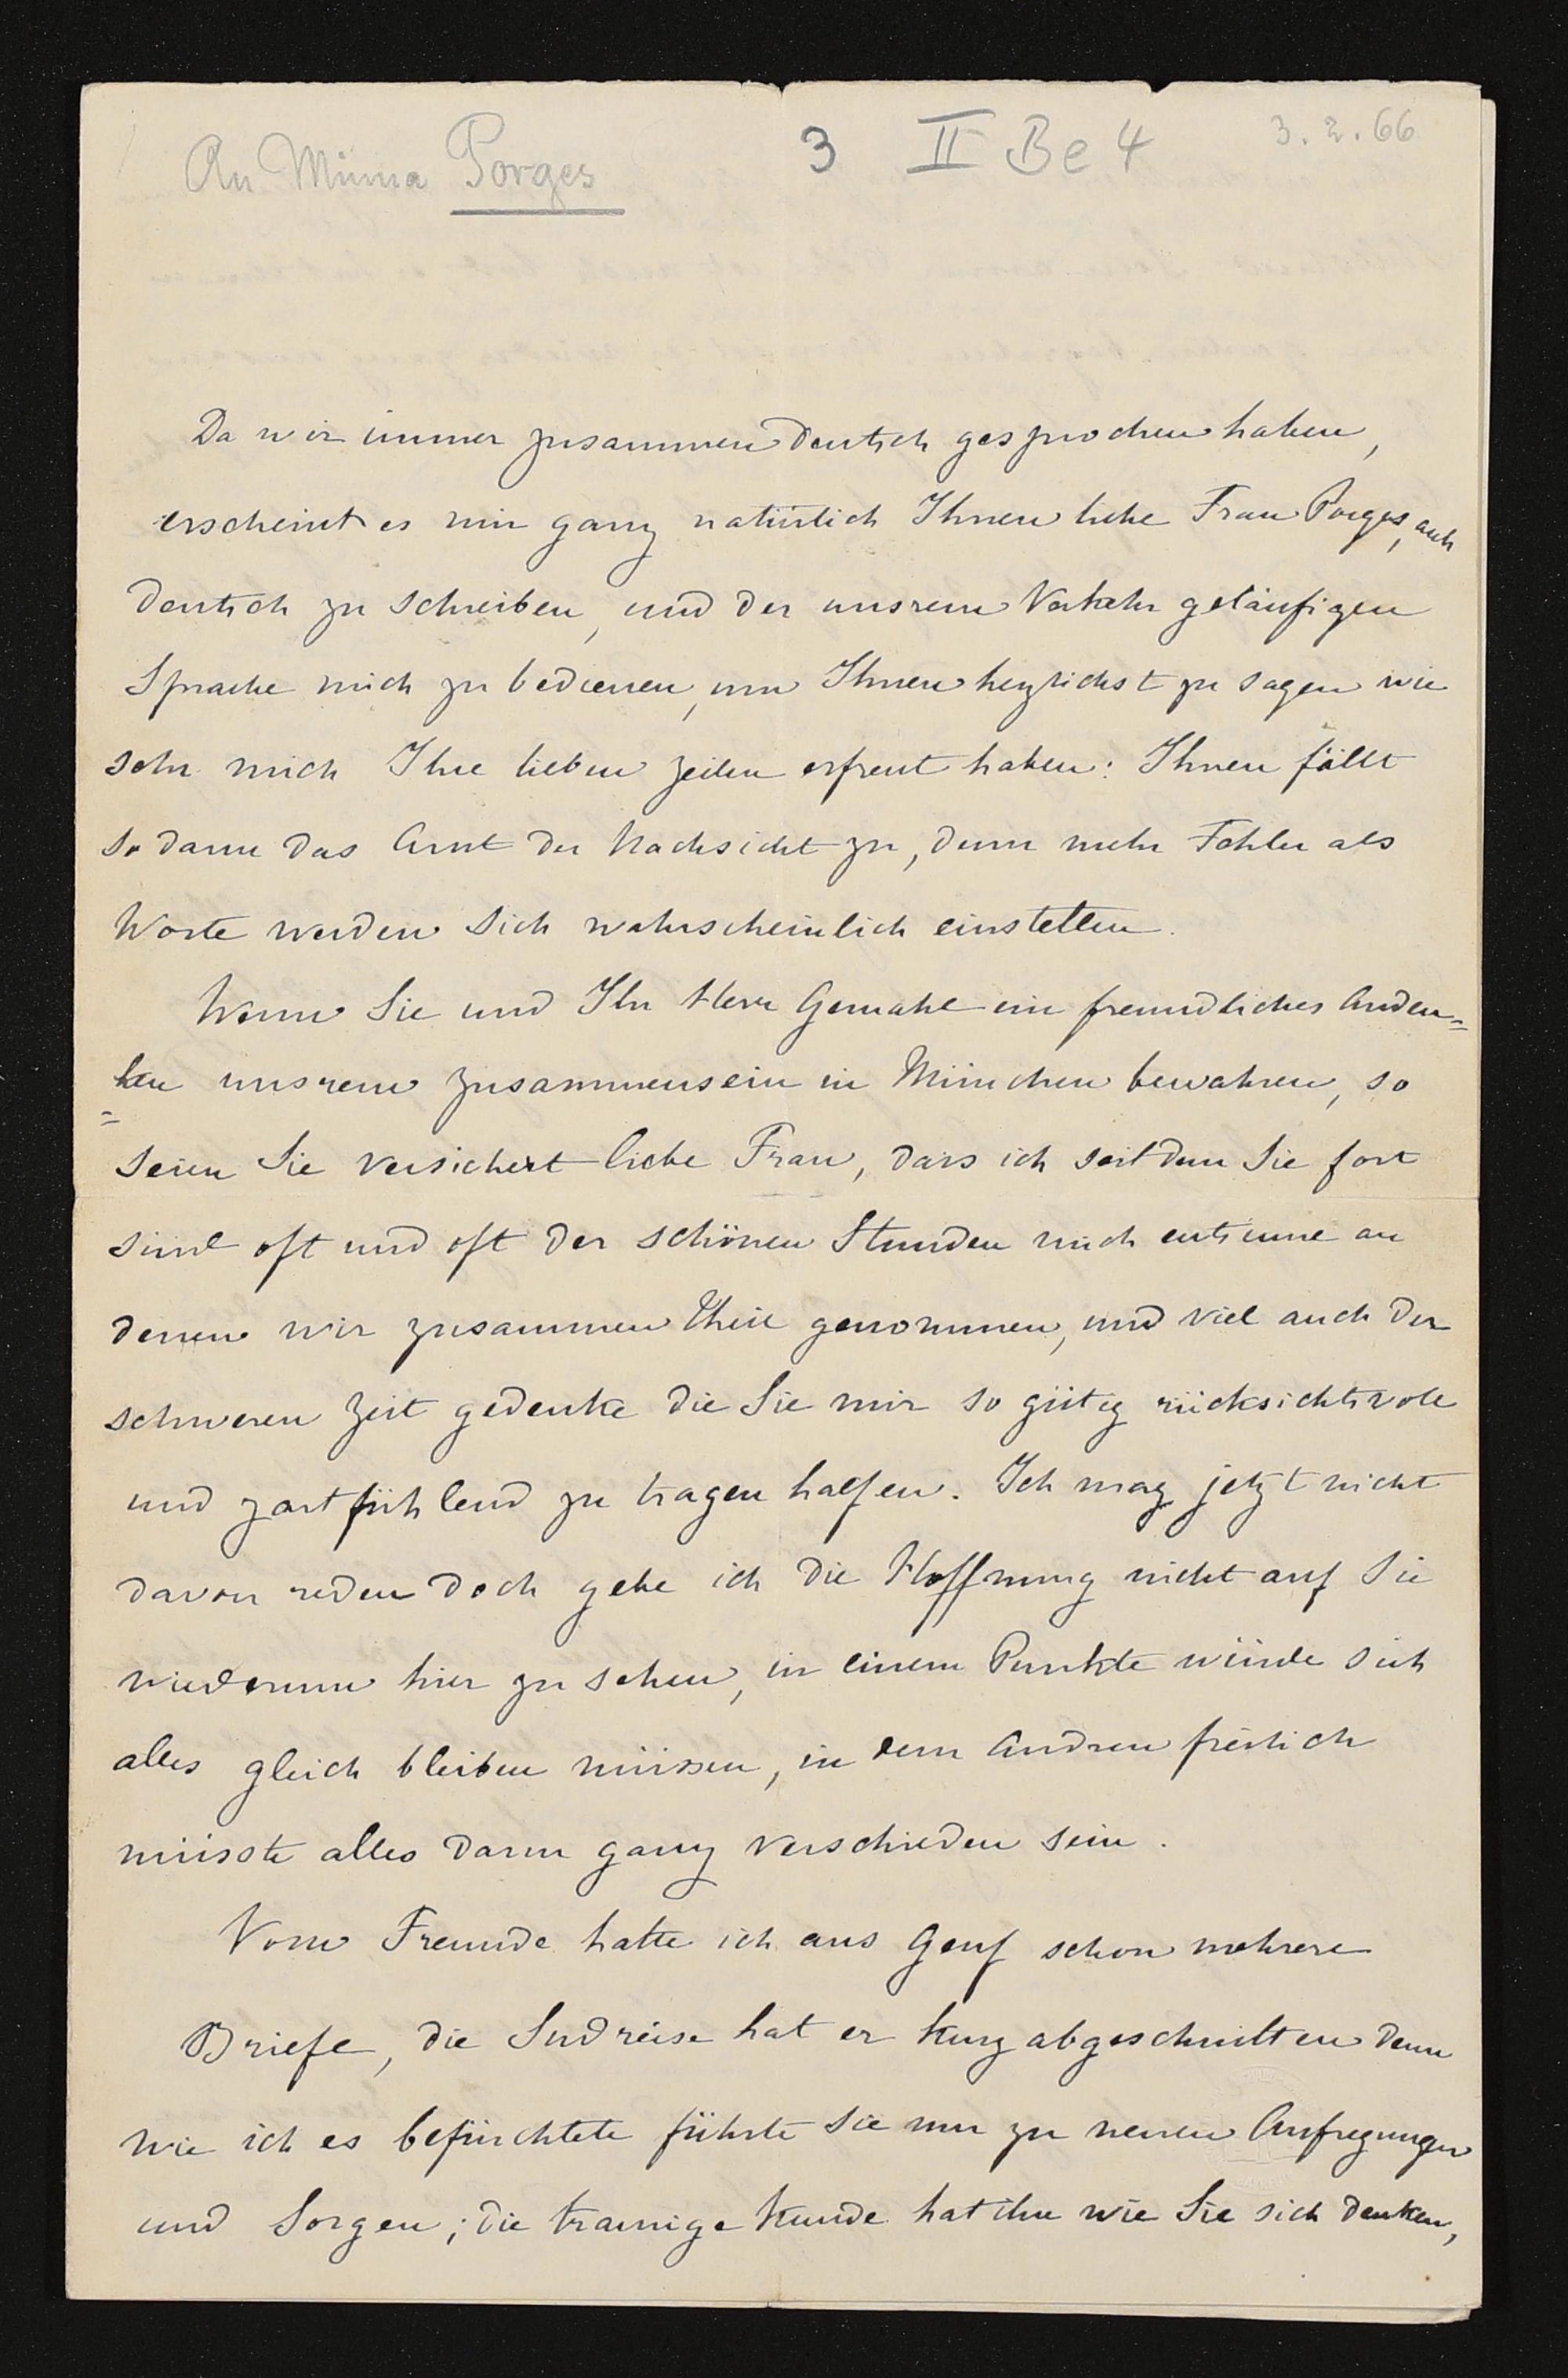 An Mima Porges
3 II Be 4 3.2.66
Da wir immer zusammen Deutsch gesprochen haben,
erscheint es mir ganz natürlich Ihnen liebe Frau Porges, auch
Deutsch zu schreiben, und der unsrem Verkehr geläufigen
Sprache mich zu bedienen, um Ihnen herzlichst zu sagen wie
sehr mich Ihre lieben Zeilen erfreut haben: Ihnen fällt
so dann das Amt der Nachsicht zu, denn mehr Fehler als
Worte werden sich wahrscheinlich einstellen.
Wenn Sie und Ihr Herr Gemahl ein freundliches Anden=
=ken unsrem Zusammensein in München bewahren, so
seien Sie versichert liebe Frau, dass ich seitdem Sie fort
sind oft und oft der schönen Stunden mich entsinne an
denen wir zusammen Theil genommen, und viel auch der
schweren Zeit gedenke die Sie mir so gütig rücksichtsvoll
und zartfühlend zu tragen halfen. Ich mag jetzt nicht
davon reden doch gebe ich die Hoffnung nicht auf Sie
wiederum hier zu sehen, in einem Punkte würde sich
alles gleich bleiben müssen, in dem Andren freilich
müsste alles dann ganz verschieden sein.
Vom Freunde hatte ich aus Genf schon mehrere
Briefe, die Südreise hat er kurz abgeschnitten denn
wie ich es befürchtete führte sie nur zu neuen Aufregungen
und Sorgen; die traurige Kunde hat ihn wie Sie sich denken,